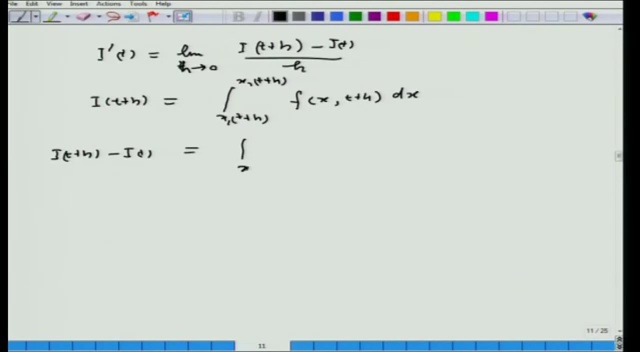 File Edit View Insert Actions Tools Help
I'(t) = lim h→0 (I(t+h) − I(t))/h
I(t+h) = ∫_{x₁(t+h)}^{x₂(t+h)} f(x, t+h) dx
I(t+h) − I(t) = ∫_x
11 / 25
11